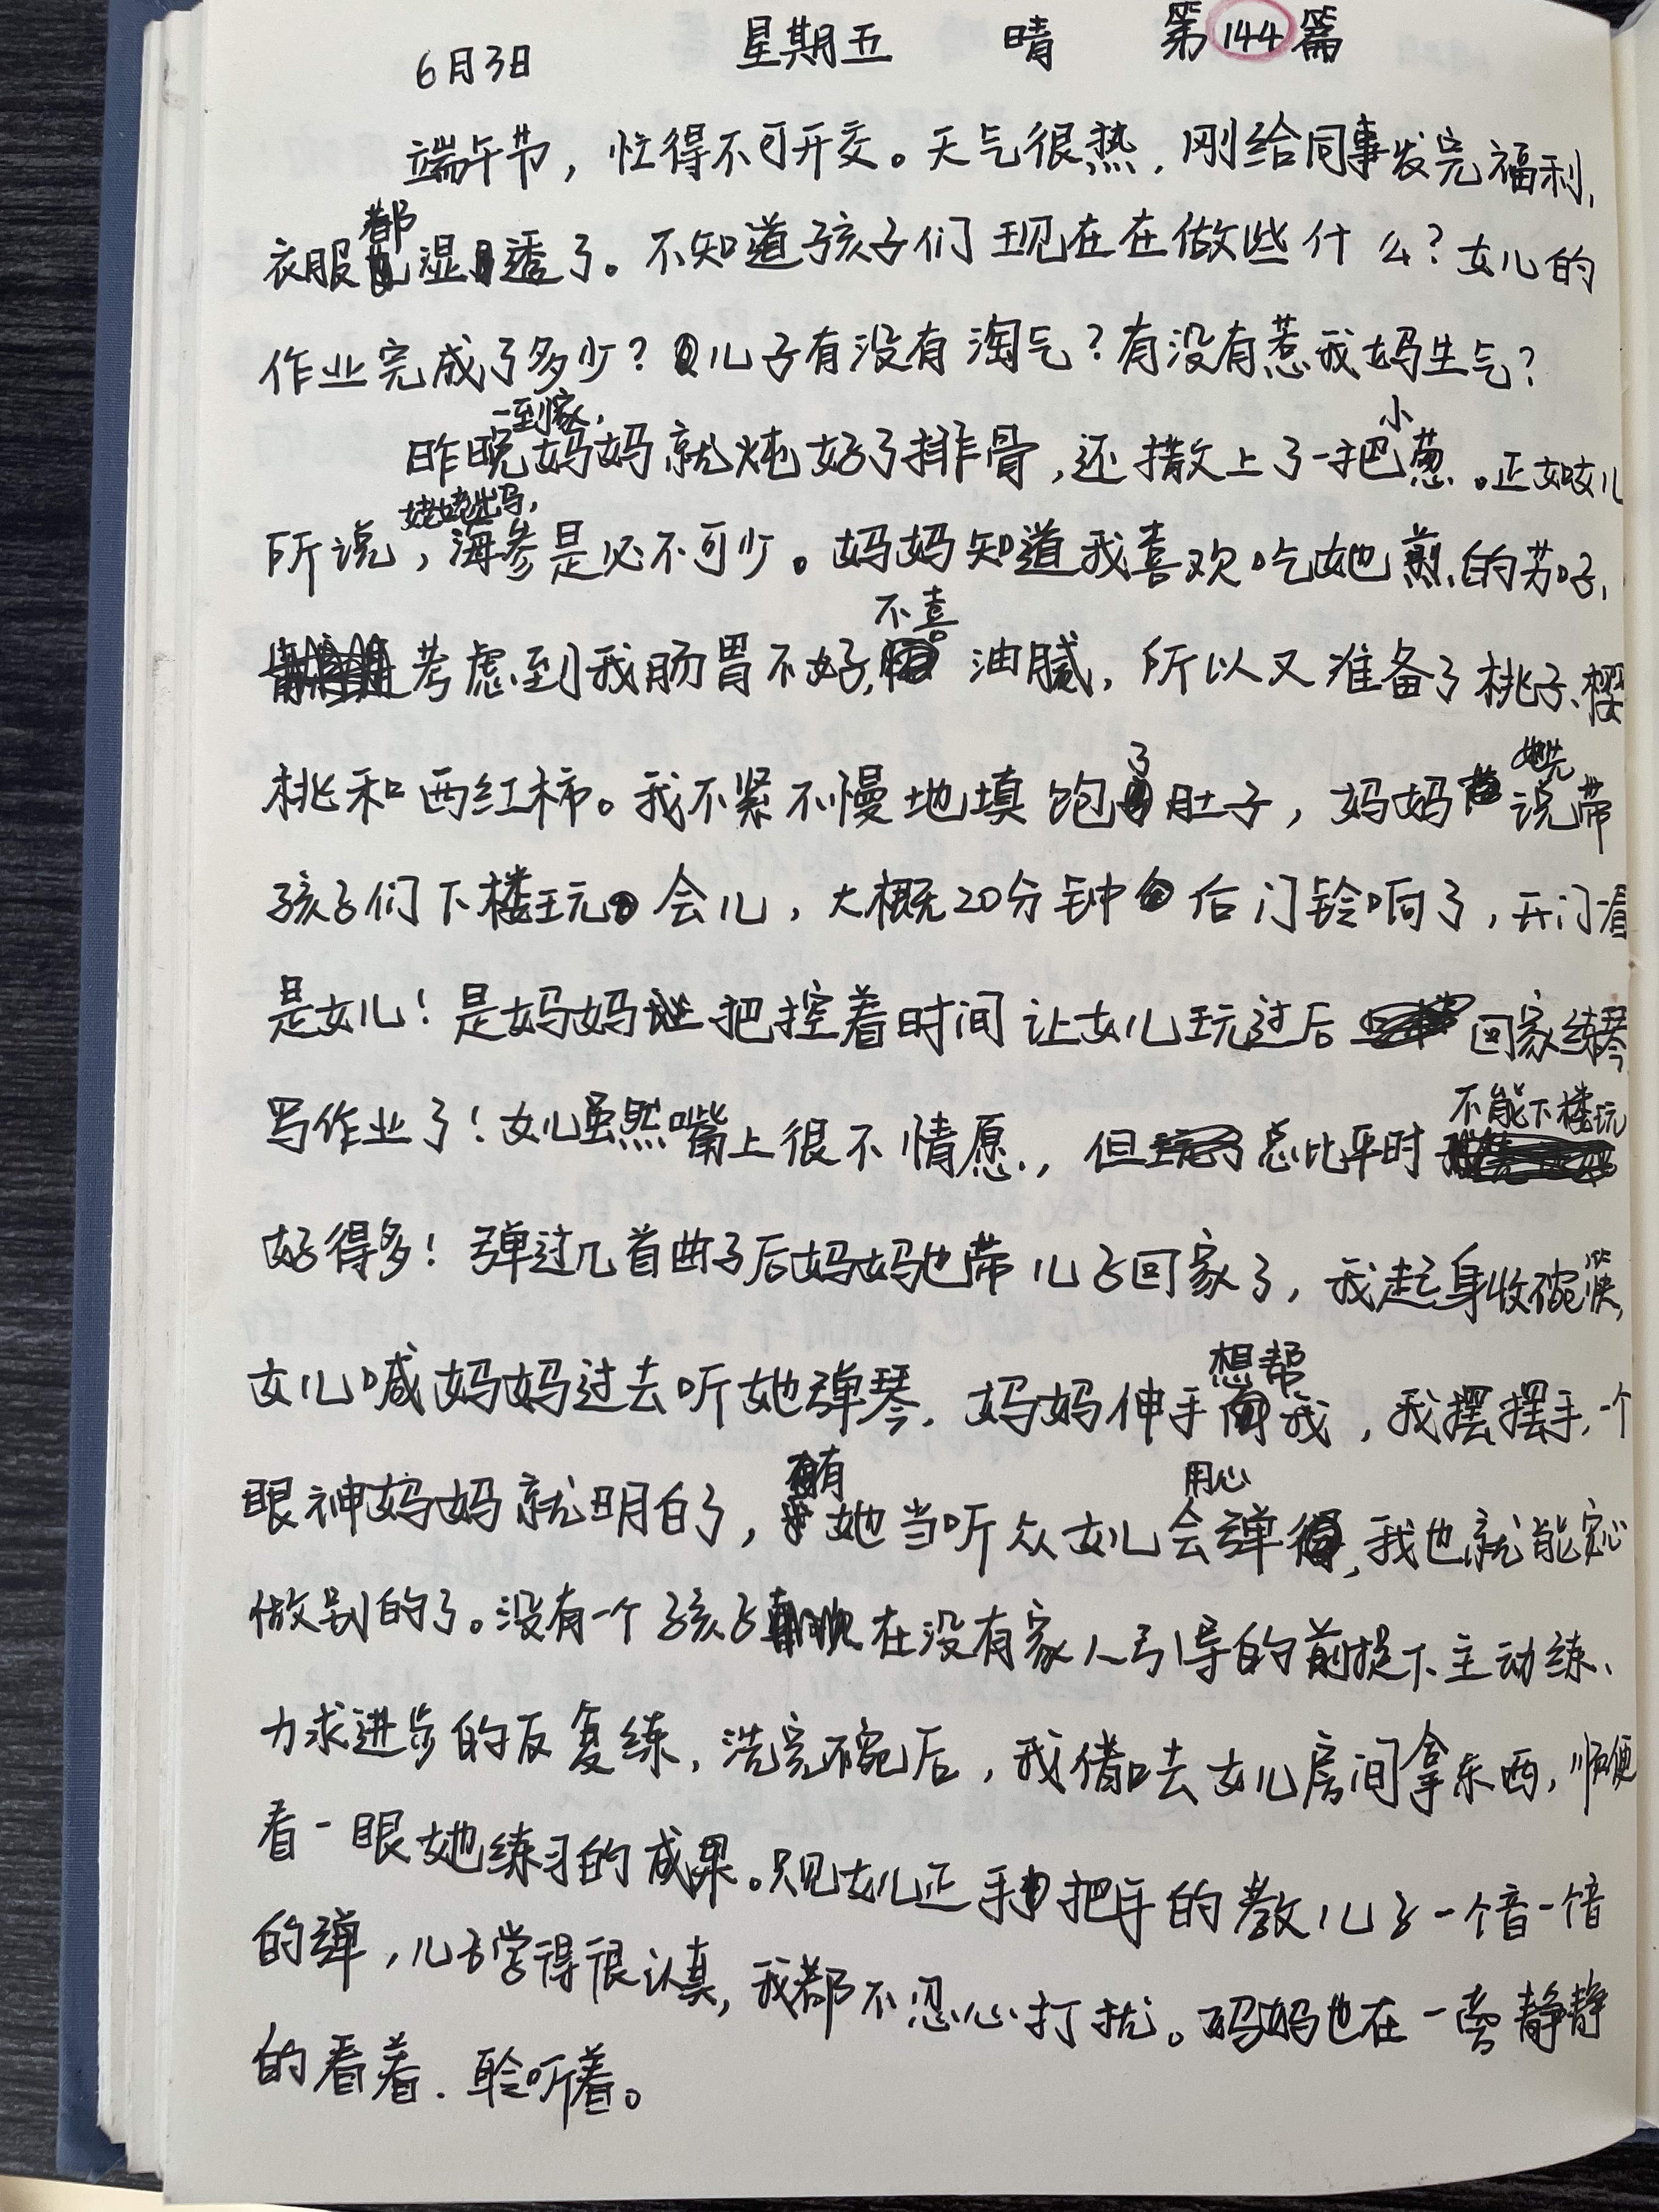 6月3日 星期五 晴 第144篇
端午节，忙得不可开交。天气很热，刚给同事发完福利，
衣服都湿透了。不知道孩子们现在在做些什么？女儿的
作业完成了多少？儿子有没有淘气？有没有惹我妈生气？
昨晚一到家，妈妈就炖好了排骨，还撒上了一把小葱。正如女儿
所说，姥姥出马，海参是必不可少。妈妈知道我喜欢吃她煎的苏子，
考虑到我肠胃不好，不喜油腻，所以又准备了桃子、樱
桃和西红柿。我不紧不慢地填饱了肚子，妈妈说她先带
孩子们下楼玩会儿，大概20分钟后门铃响了，开门一看
是女儿！是妈妈把控着时间让女儿玩过后回家练琴
写作业了！女儿虽然嘴上很不情愿，但总比平时不能下楼玩
好得多！弹过几首曲子后妈妈也带儿子回家了，我起身收碗筷，
女儿喊妈妈过去听她弹琴，妈妈伸手想帮我，我摆摆手，一个
眼神妈妈就明白了，有她当听众女儿会用心弹，我也就能安心
做别的了。没有一个孩子在没有家人引导的前提下主动练、
力求进步的反复练，洗完碗后，我借口去女儿房间拿东西，顺便
看一眼她练习的成果。只见女儿正手把手的教儿子一个音一个音
的弹，儿子学得很认真，我都不忍心打扰。妈妈也在一旁静静
的看着、聆听着。